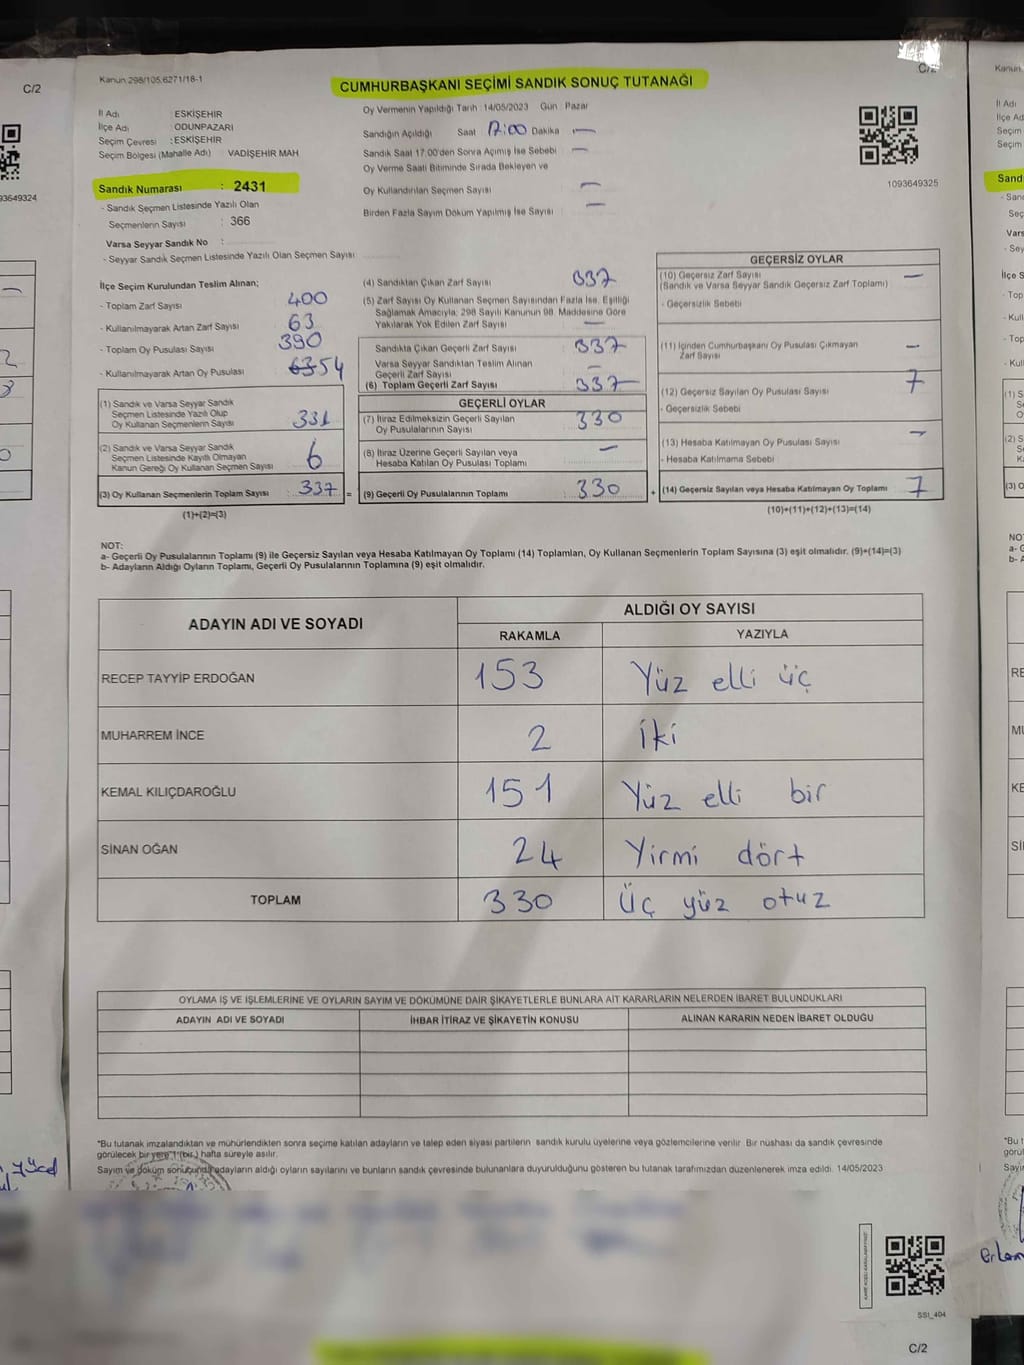 C/2
Kanun 298/105,6271/18-1
CUMHURBAŞKANI SEÇİMİ SANDIK SONUÇ TUTANAĞI
C/2
İl Adı ESKİŞEHİR
İlçe Adı ODUNPAZARI
Seçim Çevresi : ESKİŞEHİR
Seçim Bölgesi (Mahalle Adı) VADİŞEHİR MAH
Oy Vermenin Yapıldığı Tarih :14/05/2023 Gün : Pazar
Sandığın Açıldığı Saat 17:00 Dakika —
Sandık Saat 17.00'den Sonra Açılmış İse Sebebi —
Oy Verme Saati Bitiminde Sırada Bekleyen ve
Oy Kullandırılan Seçmen Sayısı —
Birden Fazla Sayım Döküm Yapılmış İse Sayısı —
1093649325
Sandık Numarası : 2431
- Sandık Seçmen Listesinde Yazılı Olan
Seçmenlerin Sayısı : 366
Varsa Seyyar Sandık No :
- Seyyar Sandık Seçmen Listesinde Yazılı Olan Seçmen Sayısı
İlçe Seçim Kurulundan Teslim Alınan;
- Toplam Zarf Sayısı 400
- Kullanılmayarak Artan Zarf Sayısı 63
- Toplam Oy Pusulası Sayısı 390
- Kullanılmayarak Artan Oy Pusulası 63 54
(1) Sandık ve Varsa Seyyar Sandık
Seçmen Listesinde Yazılı Olup
Oy Kullanan Seçmenlerin Sayısı 331
(2) Sandık ve Varsa Seyyar Sandık
Seçmen Listesinde Kayıtlı Olmayan
Kanun Gereği Oy Kullanan Seçmen Sayısı 6
(3) Oy Kullanan Seçmenlerin Toplam Sayısı : 337 =
(1)+(2)=(3)
(4) Sandıktan Çıkan Zarf Sayısı 337
(5) Zarf Sayısı Oy Kullanan Seçmen Sayısından Fazla İse, Eşitliği
Sağlamak Amacıyla; 298 Sayılı Kanunun 98. Maddesine Göre
Yakılarak Yok Edilen Zarf Sayısı —
Sandıkta Çıkan Geçerli Zarf Sayısı : 337
Varsa Seyyar Sandıktan Teslim Alınan
Geçerli Zarf Sayısı —
(6) Toplam Geçerli Zarf Sayısı : 337
GEÇERLİ OYLAR
(7) İtiraz Edilmeksizin Geçerli Sayılan
Oy Pusulalarının Sayısı : 330
(8) İtiraz Üzerine Geçerli Sayılan veya
Hesaba Katılan Oy Pusulası Toplamı —
(9) Geçerli Oy Pusulalarının Toplamı : 330 +
GEÇERSİZ OYLAR
(10) Geçersiz Zarf Sayısı —
(Sandık ve Varsa Seyyar Sandık Geçersiz Zarf Toplamı)
- Geçersizlik Sebebi
(11) İçinden Cumhurbaşkanı Oy Pusulası Çıkmayan
Zarf Sayısı —
(12) Geçersiz Sayılan Oy Pusulası Sayısı 7
- Geçersizlik Sebebi
(13) Hesaba Katılmayan Oy Pusulası Sayısı —
- Hesaba Katılmama Sebebi
(14) Geçersiz Sayılan veya Hesaba Katılmayan Oy Toplamı 7
(10)+(11)+(12)+(13)=(14)
NOT:
a- Geçerli Oy Pusulalarının Toplamı (9) ile Geçersiz Sayılan veya Hesaba Katılmayan Oy Toplamı (14) Toplamları, Oy Kullanan Seçmenlerin Toplam Sayısına (3) eşit olmalıdır. (9)+(14)=(3)
b- Adayların Aldığı Oyların Toplamı, Geçerli Oy Pusulalarının Toplamına (9) eşit olmalıdır.
ADAYIN ADI VE SOYADI ALDIĞI OY SAYISI
RAKAMLA YAZIYLA
RECEP TAYYİP ERDOĞAN 153 Yüz elli üç
MUHARREM İNCE 2 iki
KEMAL KILIÇDAROĞLU 151 Yüz elli bir
SİNAN OĞAN 24 Yirmi dört
TOPLAM 330 Üç yüz otuz
OYLAMA İŞ VE İŞLEMLERİNE VE OYLARIN SAYIM VE DÖKÜMÜNE DAİR ŞİKAYETLERLE BUNLARA AİT KARARLARIN NELERDEN İBARET BULUNDUKLARI
ADAYIN ADI VE SOYADI İHBAR İTİRAZ VE ŞİKAYETİN KONUSU ALINAN KARARIN NEDEN İBARET OLDUĞU
"Bu tutanak imzalandıktan ve mühürlendikten sonra seçime katılan adayların ve talep eden siyasi partilerin sandık kurulu üyelerine veya gözlemcilerine verilir. Bir nüshası da sandık çevresinde
görülecek bir yere "1"(bir) hafta süreyle asılır.
Sayım ve döküm sonucunda adayların aldığı oyların sayılarını ve bunların sandık çevresinde bulunanlara duyurulduğunu gösteren bu tutanak tarafımızdan düzenlenerek imza edildi. 14/05/2023
SSI_404
C/2